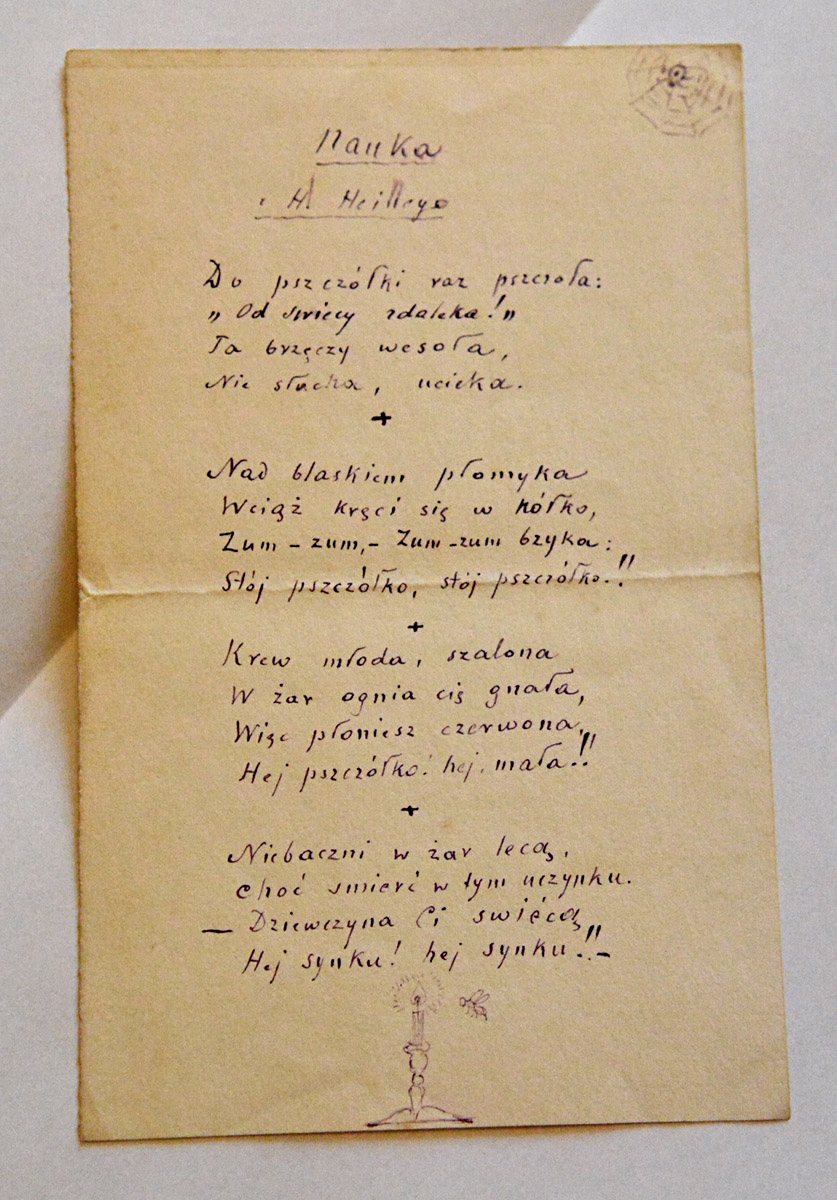 Nauka
H. Heinego
Do pszczółki raz pszczoła:
„Od świecy zdaleka!„
Ta brzęczy wesoła,
Nie słucha, ucieka.
+
Nad blaskiem płomyka
Wciąż kręci się w kółko,
Zum – zum, – Zum – zum bzyka:
Stój pszczółko, stój pszczółko.!!
+
Krew młoda, szalona
W żar ognia cię gnała,
Więc płoniesz czerwona,
Hej pszczółko! hej, mała!!
+
Niebaczni w żar lecą,
choć śmierć w tym uczynku.
— Dziewczyna Ci świécą,
Hej synku! hej synku!! –